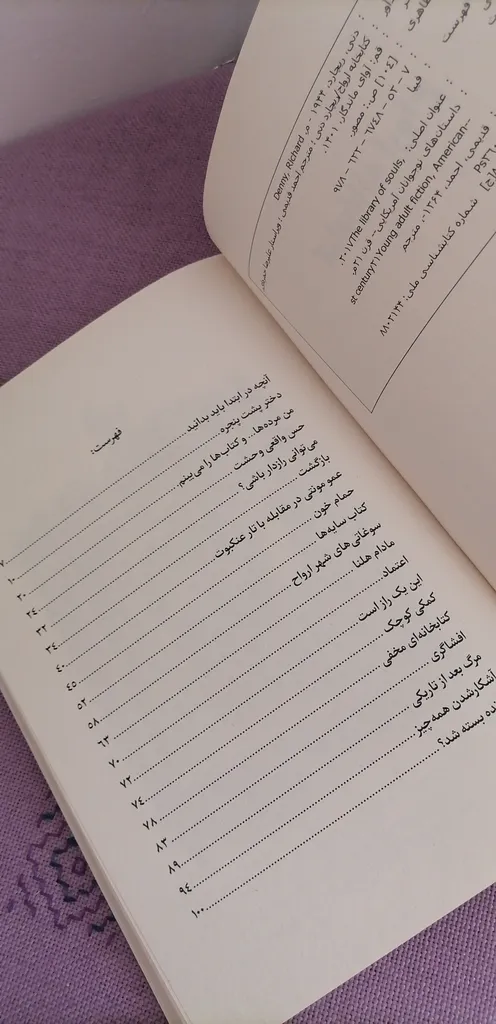 دنی، ریچارد، ۱۹۴۴ - م. Denny, Richard
کتابخانه ارواح/ریچارد دنی؛ مترجم احمد قدیمی؛ ویراستار
قم: آوای ماندگار، ۱۴۰۱.
[۱۰۴] ص.: مصور.
۹۷۸ – ۶۲۲ – ۶۷۴۸ – ۵۳ – ۷
فیپا
عنوان اصلی: The library of souls, ۲۰۱۷.
داستان‌های نوجوانان آمریکایی-- قرن ۲۱م.
Young adult fiction, American--
۲۱st century
قدیمی، احمد، ۱۳۶۴-، مترجم
شماره کتابشناسی ملی: ۸۸۰۲۱۴۴
فهرست:
آنچه در ابتدا باید بدانید ۷
دختر پشت پنجره ۱۰
من مرده‌ها... و کتاب‌ها را می‌بینم ۲۰
حس واقعی وحشت ۲۴
می‌توانی رازدار باشی؟ ۳۳
بازگشت ۳۴
عمو مونتی در مقابله با تار عنکبوت ۴۰
حمام خون ۴۵
کتاب سایه‌ها ۵۲
سوغاتی‌های شهر ارواح ۵۸
مادام هلنا ۶۳
اعتماد ۷۰
این یک راز است ۷۲
کمکی کوچک ۷۴
کتابخانه‌ای مخفی ۷۸
افشاگری ۸۳
مرگ بعد از تاریکی ۸۹
آشکارشدن همه‌چیز ۹۴
بسته شد؟ ۱۰۰